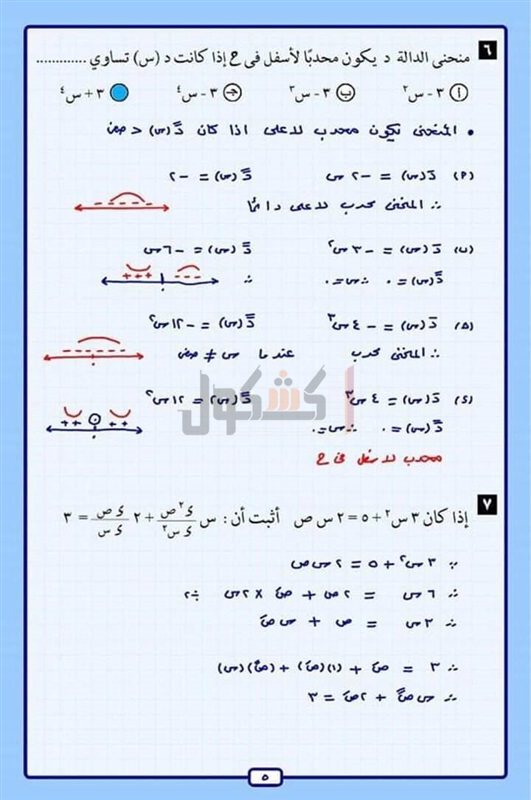 ٦ منحنى الدالة د يكون محدبًا لأسفل فى ح إذا كانت د (س) تساوي .............
أ ٣ - س٢ ب ٣ - س٣ ج ٣ - س٤ ٣ + س٤
• المنحنى يكون محدب لاعلى اذا كان دً(س) < صفر
(P) دَ(س) = -٢س دً(س) = -٢
∴ المنحنى محدب لاعلى دائمًا
(ب) دَ(س) = -٣س٢ دً(س) = -٦س
دً(س) = ٠ ∴ س = ٠ ∴
+++ ---
(ج) دَ(س) = -٤س٣ دً(س) = -١٢س٢
∴ المنحنى محدب عندما س ≠ صفر
كشكول
(د) دَ(س) = ٤س٣ دً(س) = ١٢س٢
دً(س) = ٠ ∴ س = ٠
++ ++
محدب لاسفل فى ح
٧ إذا كان ٣ س٢ + ٥ = ٢ س ص أثبت أن : س ء٢ص/ءس٢ + ٢ ءص/ءس = ٣
∵ ٣س٢ + ٥ = ٢س ص
∴ ٦س = ٢ص + صَ × ٢س ÷٢
∴ ٣س = ص + س صَ
∴ ٣ = صَ + (١)(صَ) + (صً)(س)
∴ س صً + ٢صَ = ٣
٥